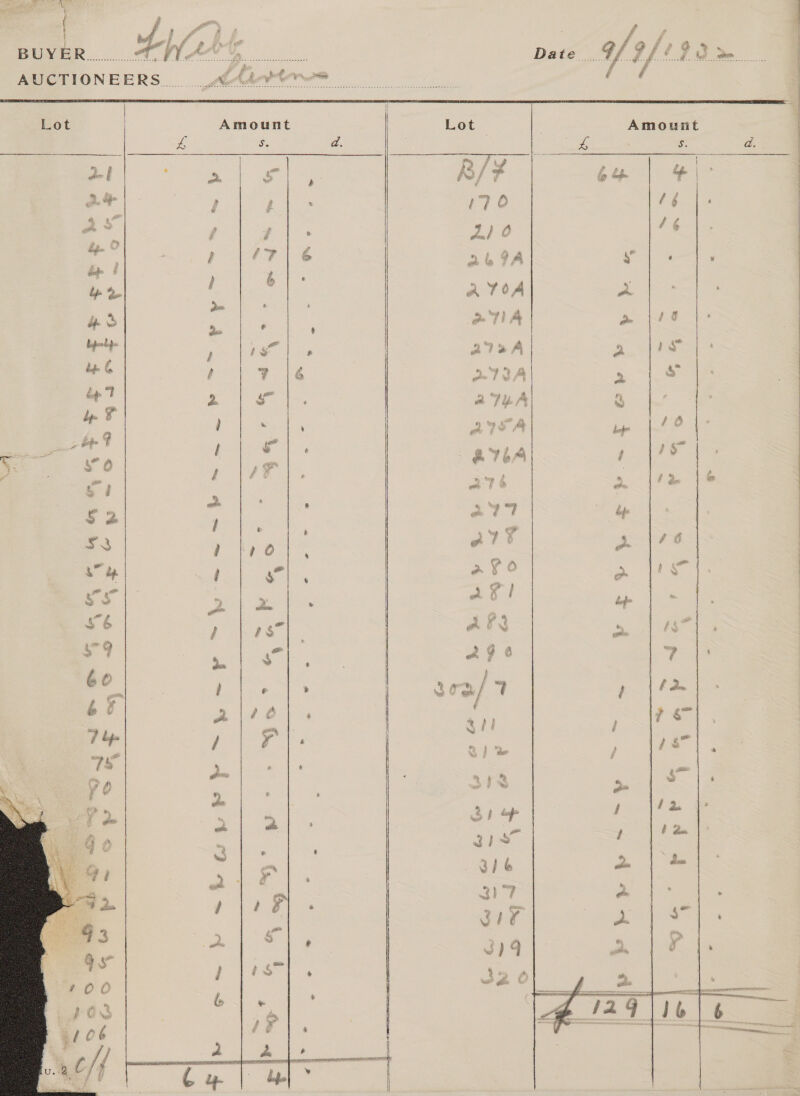 BUYER F Webb Date 9/9/1932
AUCTIONEERS Stevens
Lot Amount Lot Amount
£ s. d. £ s. d.
21 2 5 . B/F 64 4 .
24 1 1 . 170 16 .
25 1 1 . 210 16 .
40 1 17 6 269A 5 . .
41 1 6 . 270A 2 . .
42 2 . . 271A 2 10 .
43 2 . . 272A 2 15 .
44 1 15 . 273A 2 5 .
46 1 7 6 274A 3 . .
47 2 5 . 275A 4 10 .
48 1 . . 276A 1 15 .
49 1 5 . 276 2 12 6
50 1 18 . 277 4 . .
51 2 . . 278 2 10 .
52 1 . . 280 2 15 .
53 1 10 . 281 4 . .
54 1 5 . 283 2 15 .
55 2 2 . 290 7 .
56 1 15 . 302/7 1 12 .
59 2 5 . 311 1 15 .
60 1 . . 312 1 15 .
68 2 10 . 313 2 5 .
74 1 8 . 314 1 12 .
75 2 . . 315 1 12 .
80 2 . . 316 2 2 .
82 2 2 . 317 2 . .
90 3 . . 318 2 5 .
91 2 8 . 319 2 8 .
92 1 18 . 320 2 . .
93 2 5 . £ 129 16 6
95 1 15 .
100 6 . .
103 18 .
106 2 2 .
c/f 64 4 .